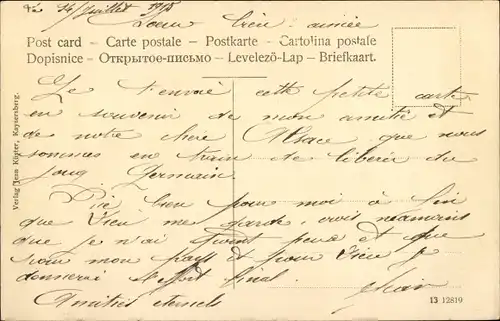 le 14 Juillet 1918
Soeur bien aimée
Post card – Carte postale – Postkarte – Cartolina postale
Dopisnice – Открытое-письмо – Levelezö-Lap – Briefkaart.
Je t'envoie cette petite carte
en souvenir de mon amitié et
de notre chère Alsace que nous
sommes en train de libérer du
joug Germain.
Prie bien pour moi à fin
que Dieu me garde, crois néamoins
que je n'ai point peur et que
pour mon pays et pour Dieu je
donnerai l'effort final.
Amitiés eternels
Verlag Jean Küpter, Kaysersberg.
13 12819